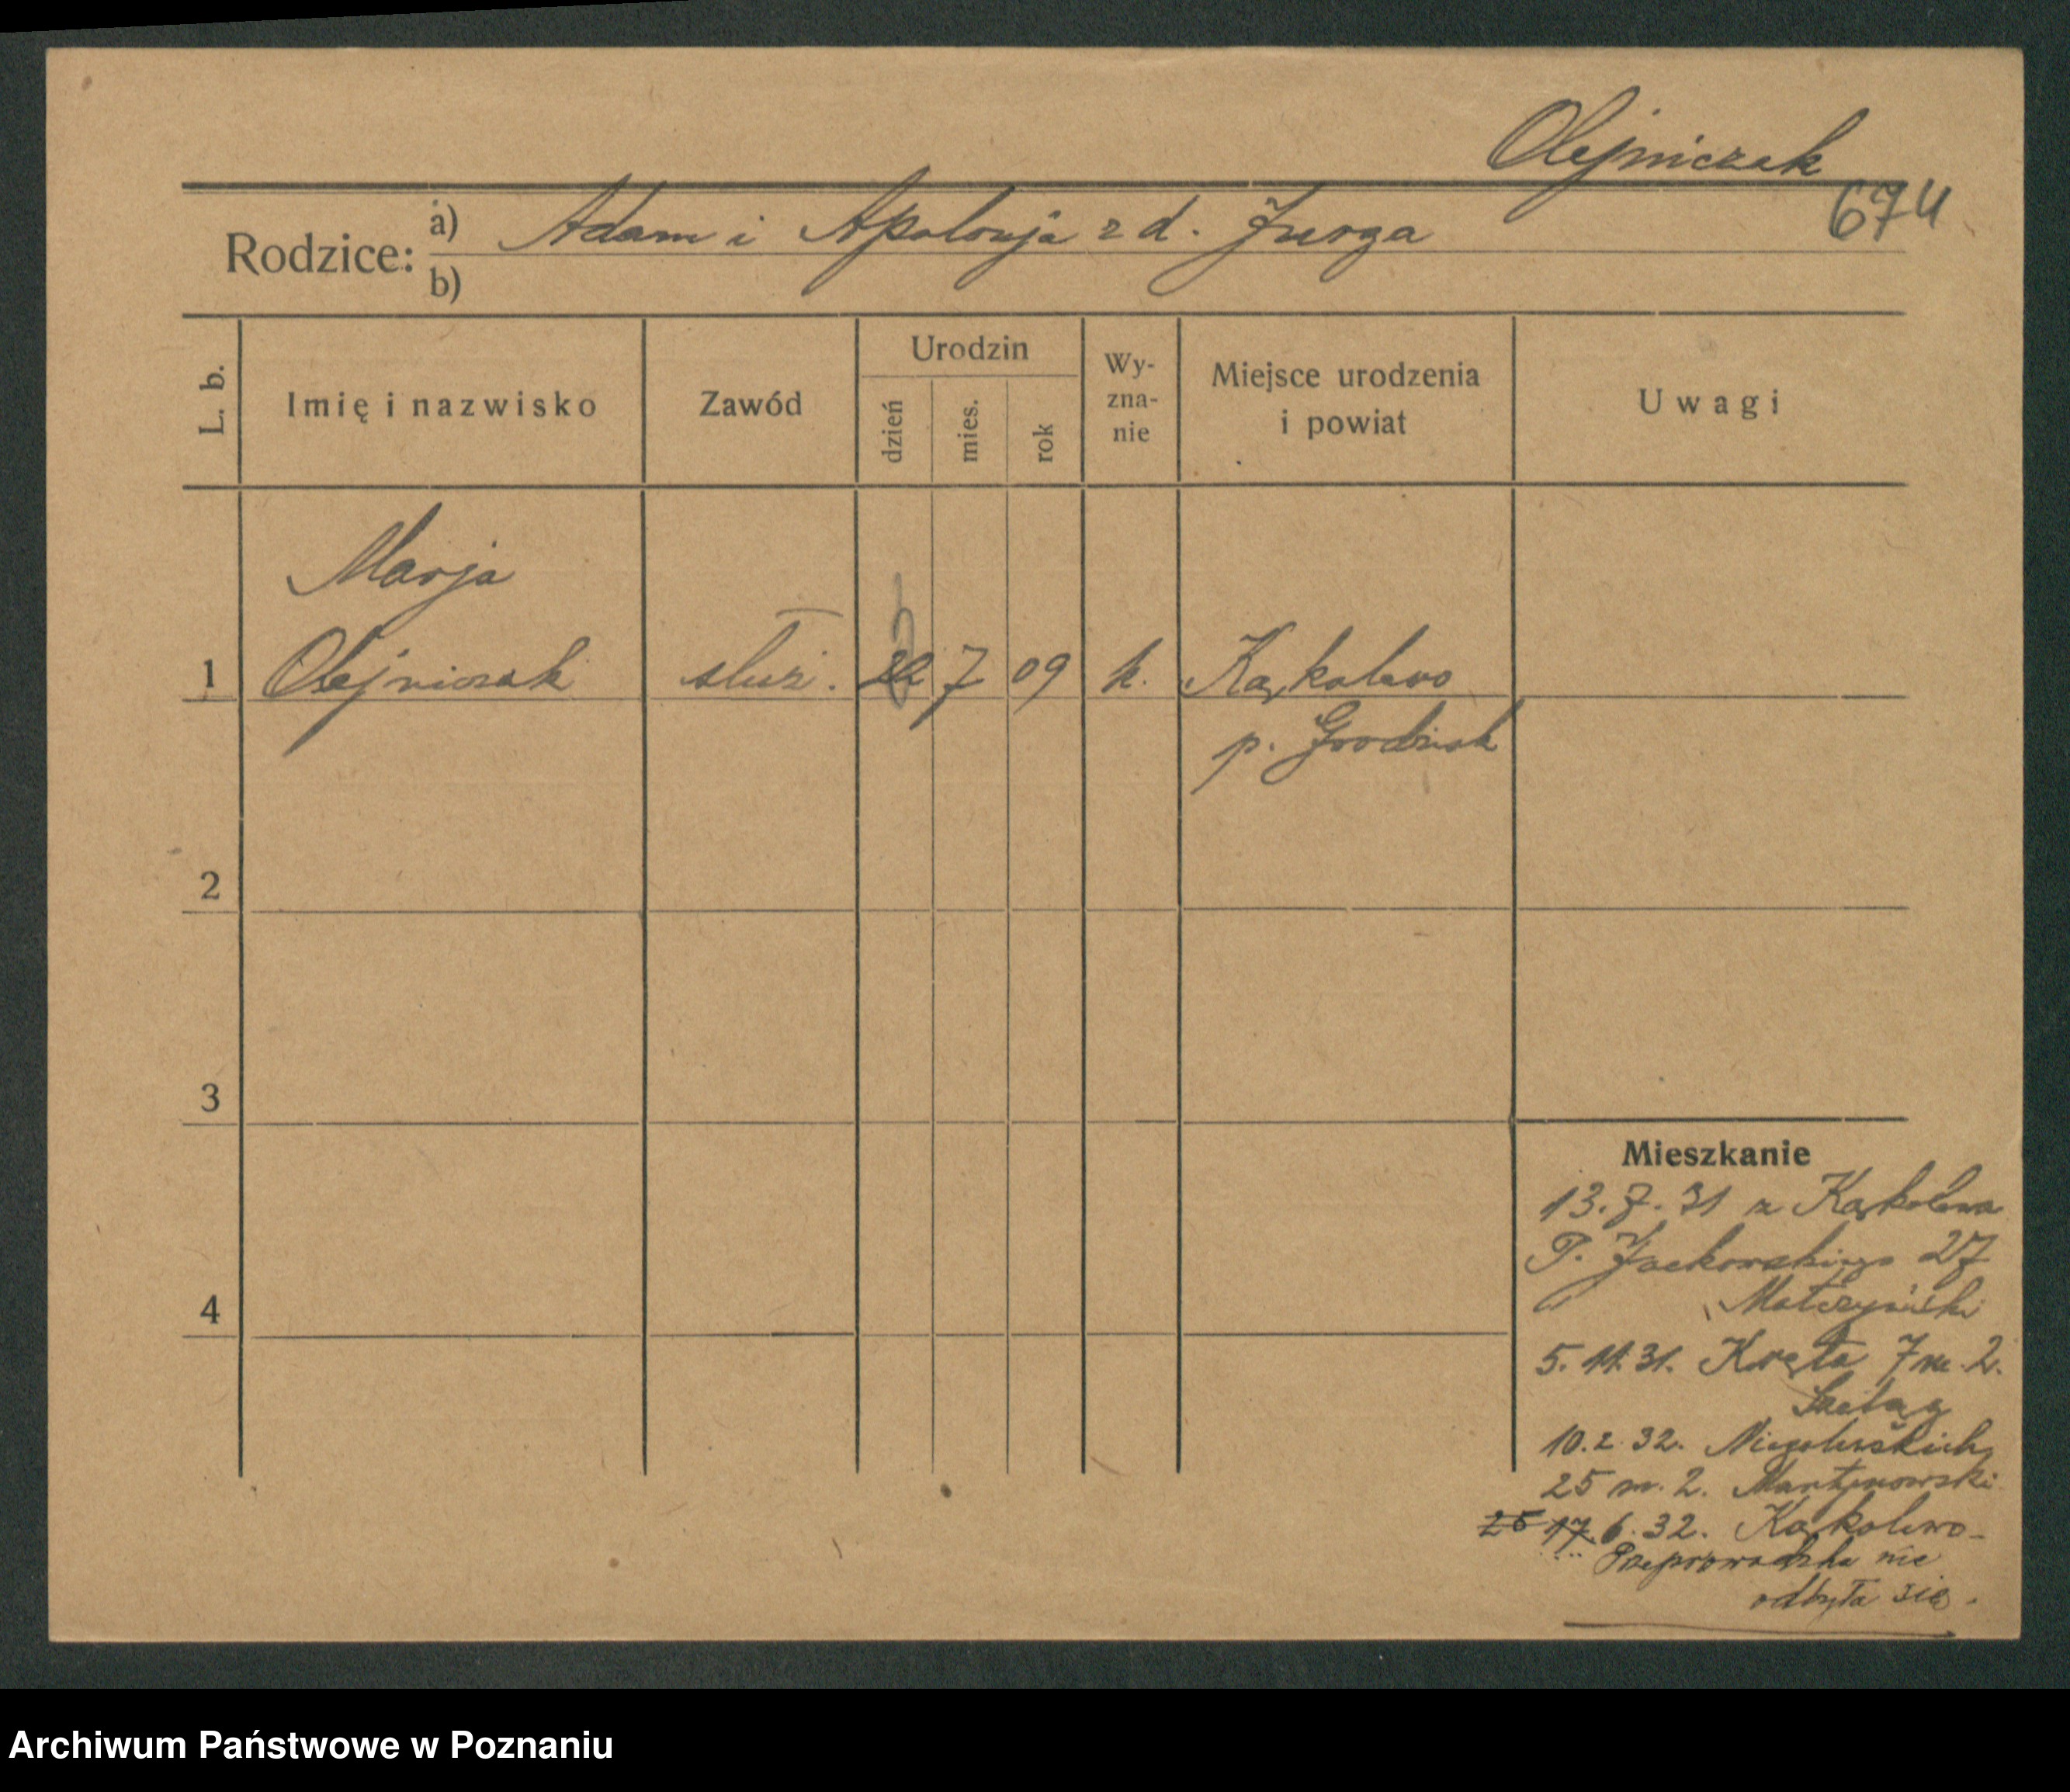 Olejniczak
674
Rodzice: a) Adam i Apolonja z d. Jurga
b)
L. b.
Imię i nazwisko
Zawód
Urodzin
dzień
mies.
rok
Wy-
zna-
nie
Miejsce urodzenia
i powiat
Uwagi
Marja
1 Olejniczak służ. 7 09 k. Kąkolewo
p. Grodzisk
2
3
4
Mieszkanie
13.7.31 z Kąkolewa
P. Jackowskiego 27
5.11.31. Kręta 7 m. 2.
10.2.32. Niegolewskich
25 m. 2. Martynowski
25 17.6.32. Kąkolewo-
Przeprowadzka nie
odbyła się.
Archiwum Państwowe w Poznaniu